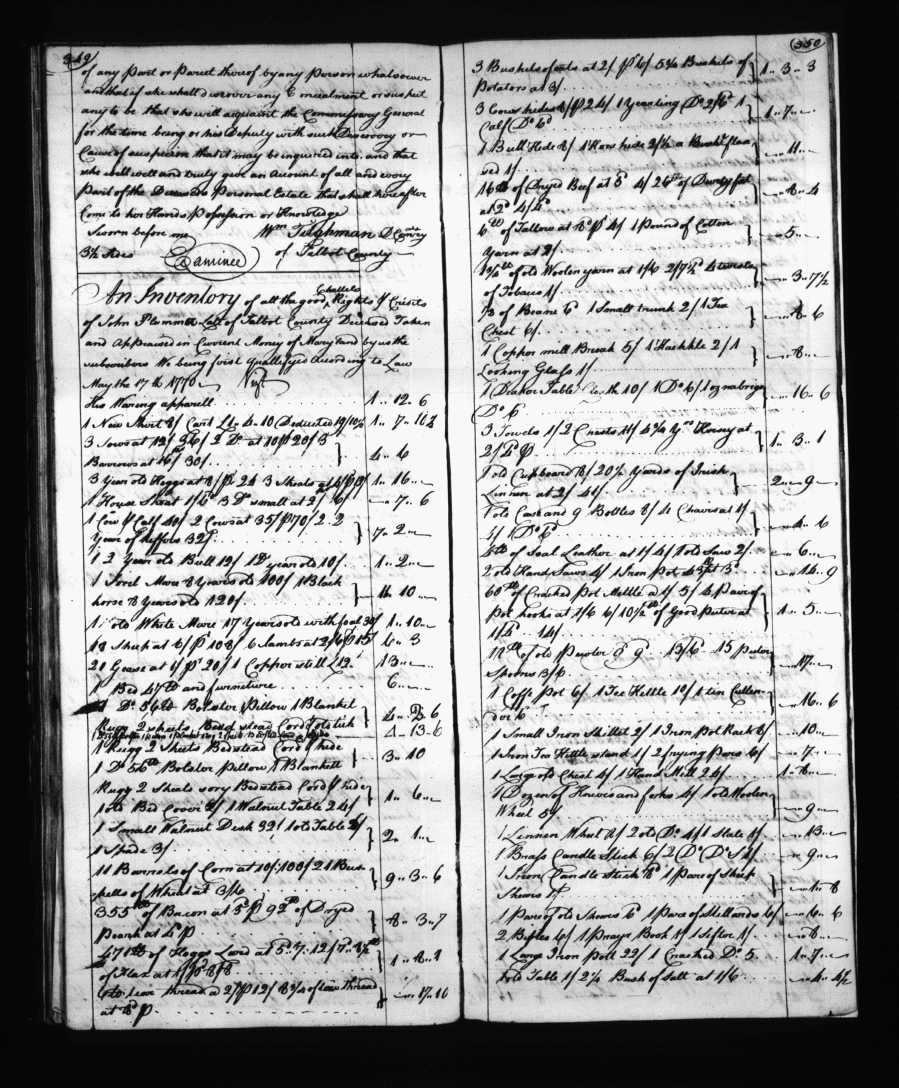 349
of any Part or Parcel thereof by any Person whatsoever
and that if she shall discover any Concealment or suspect
any to be that she will acquaint the Commissary General
for the time being or his Deputy with such Discovery or
Cause of suspicion that it may be inquired into and that
she will well and truly give an Account of all and every
Part of the Deceaseds Personal Estate that shall hereafter
Come to her Hands Possession or Knowledge
Sworn before me Wm Tilghman D Comry
3½ sides Examined of Talbot County
An Inventory of all the goods Chattels Rights & Credits
of John Plummer Late of Talbot County Deceased Taken
and Appraised in Current Money of Maryland by us the
subscribers We being first Qualifyed According to Law
May the 17th 1770 Vizt
His Waring apparell 1 12 6
1 New Shirt 8/ Cart £1 4 10 Deducted 19/10½ 1 7 10½
3 Sows at 12/ 36/ 2 Do at 10/P 20/ 3
Barrows at 10/ 30/ 4 6
3 Year old Hoggs at 8/P 24 3 Shoats at 4/P 1 16
1 House Shoat 1/6 3 Do small at 2/ 6/ 7 6
1 Cow & Calf 40/ 2 Cows at 35/P 70/ 2 2
Year old Heiffers 32/ 7 2
1 2 Year old Bull 12/ 1 Do year old 10/ 1 2
1 Sorel Mare 8 Years old 100/ 1 Black
horse 8 Years old 120/ 10
1 old White Mare 17 Years old with foal 30/ 1 10
18 Sheep at 6/P 108/ 6 Lambs at 2/6P 15/ 6 3
20 Geese at 1/P 20/ 1 Copper still £12 13
1 Bed 47lb and furneture 6
1 Do 56lb Bolster Pillow 1 Blanket
Rugg 2 sheets Bedd stead Cord & old tick 6
4 13 6
1 Rugg 2 Sheets Bedstead Cord & hide 3 10
1 Do 56lb Bolster Pillow 1 Blankett
Rugg 2 Sheets sory Bedstead Cord & hide
1 old Bed Cover 2/ 1 Walnut Table 24/ 1 6
1 Small Walnut Desk 32/ 1 old Table 6/
1 Spade 3/ 2 1
11 Barrels of Corn at 10/ 100/ 21 Bush
shells of Wheat at 3/6 9 3 6
355lb of Bacon at 5d P 92lb of Dryed
at 4d P 8 3 7
47lb of Hoggs Lard at
of Flax at 1 8 1
thread a 2/P 12/ 8¾ of tow thread
at 8d P 17 10
350
3 Bushels of oats at 2/P 6/ 5¾ Bushels of
Potators at 3/ 1 3 3
3 Cows hides 8/P 24/ 1 Yearling Do 2/6 1
Calf Do 6d 1 7
1 Bull Hide 8/ 1 Hors hide 2/½ a Bushl flax
sed 1/ 11
16lb of Dryed Beef at 3d 4/ 26lb of Durty fat
at 2d 4/4d 8 4
6lb of Tallow at 8d P 4/ 1 Pound of Cotton
Yarn at 2/ 5
1¾lb of old Woolen yarn at 1/6 2/7½ 4 twists
of Tobaco 1/ 3 7½
⅓ of Beans 6d 1 Small trunk 2/ 1 Tea
Chest 6/ 8 6
1 Coppor mill Break 5/ 1 Hackkle 2/ 1
Looking Glass 1/ 8
1 Diaker Table Cloth 10/ 1 Do 6/ 1 oznabrigs
Do 6 16 6
3 Towels 1/ 2 Chests 11/ 4¾ Yds Honey at
1 3 1
1 old Cupboard 8/ 20½ Yards of Irish
Linnen at 2/ 41/ 2 9
1 old Case and 9 Bottles 8/ 4 Chairs at 1/
4/ 1 Do 6d 6
4lb of Soal Leather at 1/ 4/ 1 old Saw 2/ 6
2 old Hand Saws 4/ 1 Iron Pot 43lb at 3d 14 9
60lb of Cracked Pot Mettle a 1/ 5/ 4 Pare of
Pot hooks at 1/6 6/ 10½lb of Good Puter at
1/4 14/ 1 5
18lb of old Pewter @ 9d 13/6d 15 Puter
Spoons 3/6 17
1 Coffe Pot 6/ 1 Tea Kettle 10/ 1 tin Cullen
der 6d 16 6
1 Small Iron Skillet 2/ 1 Iron Pot Rack 8/ 10
1 Iron Tea Kittle stand 1/ 2 frying Pans 6/ 7
1 Large old Chest 4/ 1 Hand Mill 24/ 1 8
1 Dozen of Knives and forks 4/ 1 old Woolen
Wheel 5/ 9
1 Linnen Wheel 8/ 2 old Do 4/ 1 Slate 1/ 13
1 Brass Candle Stick 6/ 2 Do Do 9
1 Iron Candle Stick 8d 1 Pare of Sheep
Shears 1/ 1 8
1 Pare of old Shears 6d 1 Pare of Stillards 6/ 6 6
2 Bibles 6/ 1 Prayr Book 1/ 1 Sifter 1/ 8
1 Large Iron Pott 22/ 1 Cracked Do 5 1 7
1 old Table 1/ 2¼ Bush of Salt at 1/6 4 4½